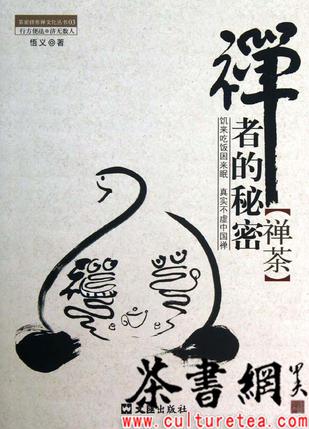 茶密修养禅文化丛书03
行方便法 济无数人
悟义◎著
禅者的秘密
【禅茶】
饥来吃饭困来眠
真实不虚中国禅
茶書網
文匯出版社
www.culturetea.com